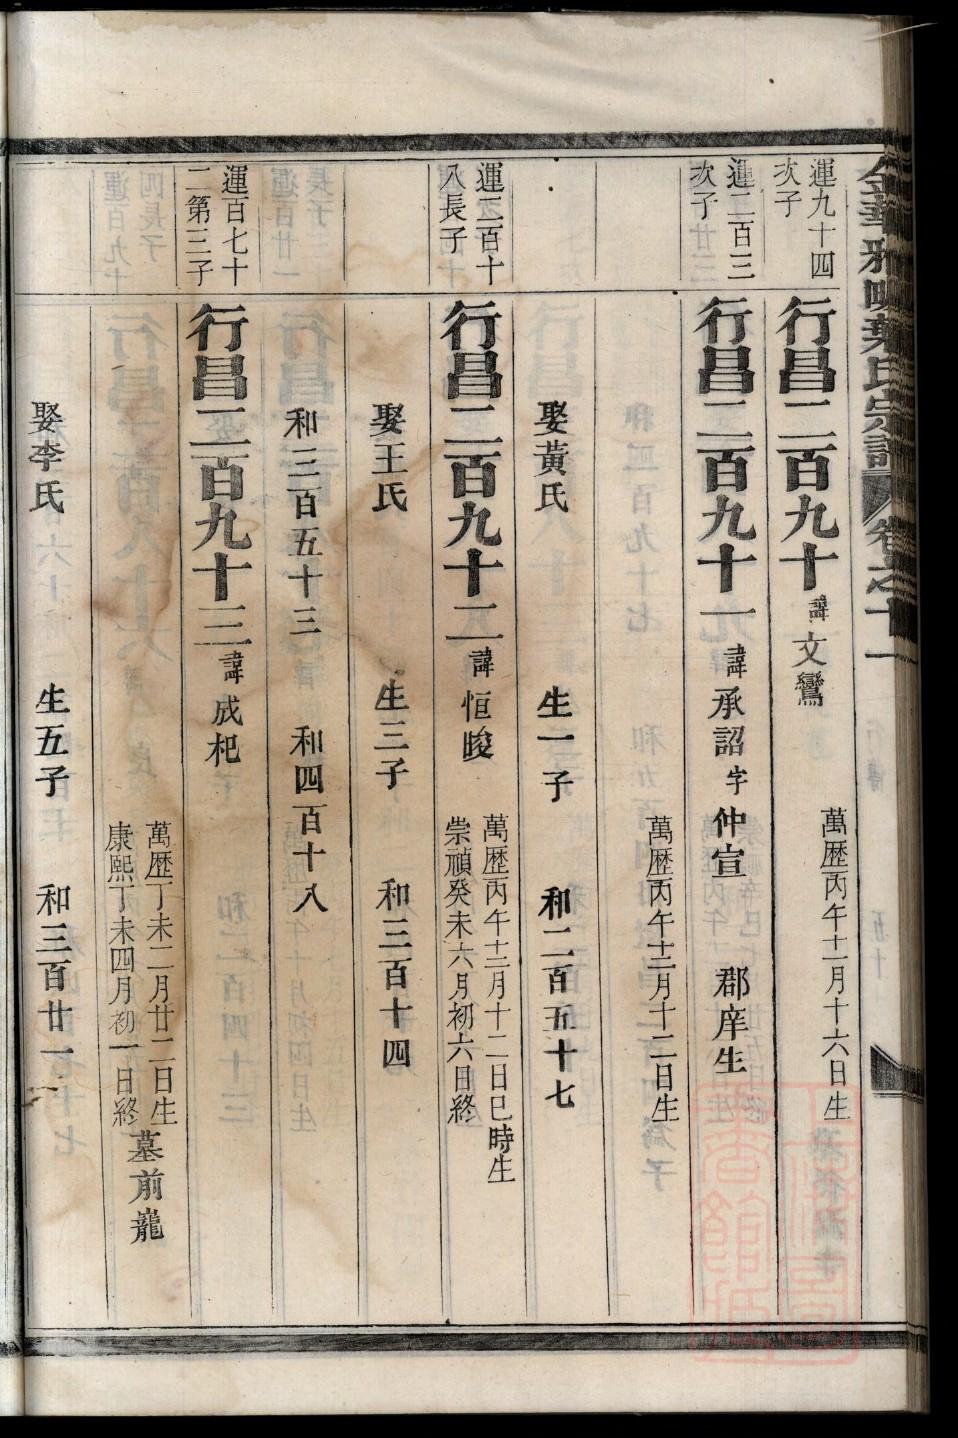 金華雅畈葉氏宗譜 卷之十一
運九十四
次子
行昌二百九十 諱 文鸞 萬歷丙午十一月十六日生
運二百三
次子
行昌二百九十一 諱 承詔 字 仲宣 郡庠生
萬歷丙午十二月十二日生
娶黃氏 生一子 和二百五十七
運二百十
八長子
行昌二百九十二 諱 恒畯 萬歷丙午十二月十二日巳時生
崇禎癸未六月初六日終
娶王氏 生三子 和三百十四
和三百五十三 和四百十八
運百七十
二第三子
行昌二百九十三 諱 成杞
萬歷丁未二月廿二日生
康熙丁未四月初一日終
墓前巃
娶李氏 生五子 和三百廿一